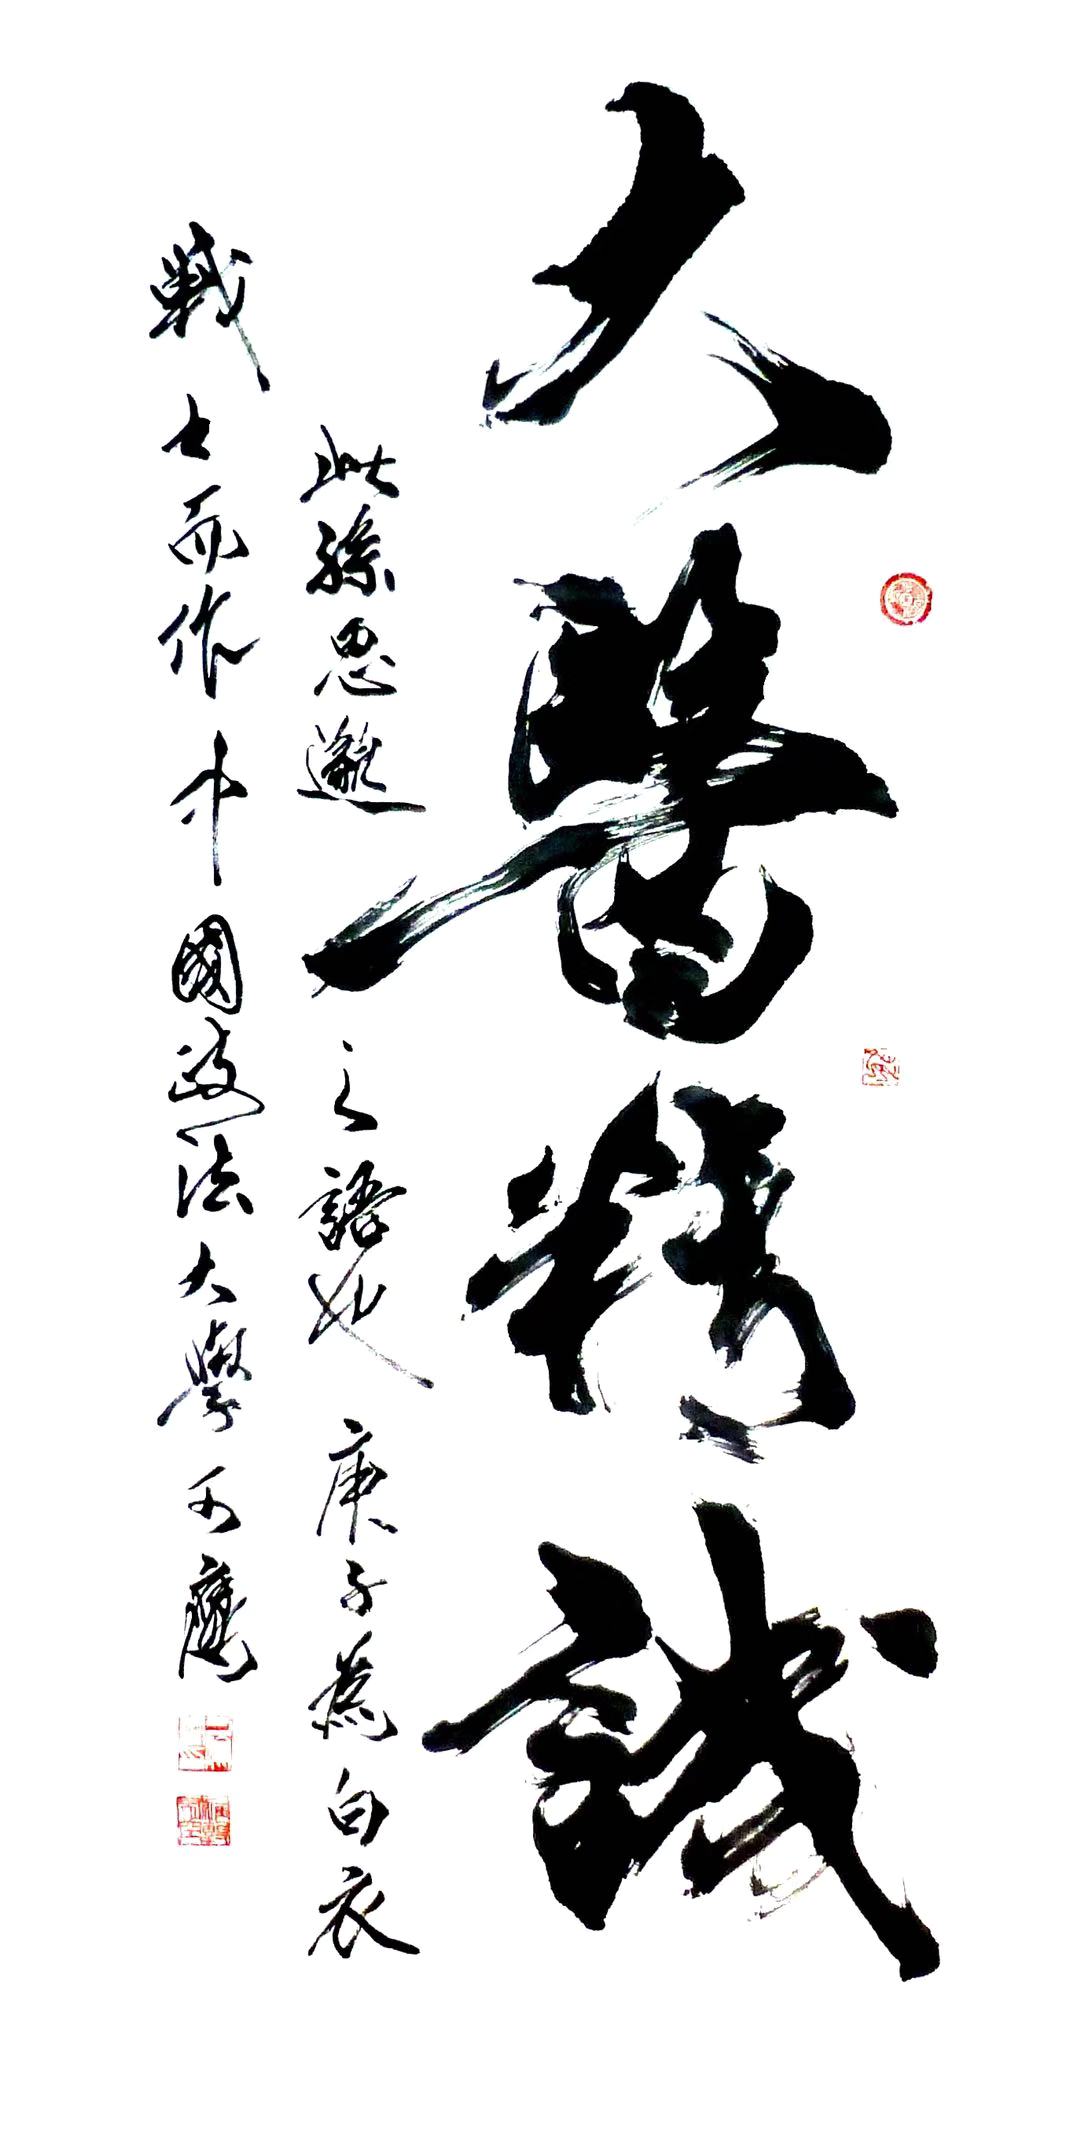 大醫精誠
此孫思邈之語也 庚子為白衣
戰士而作 中國政法大學 于鷹